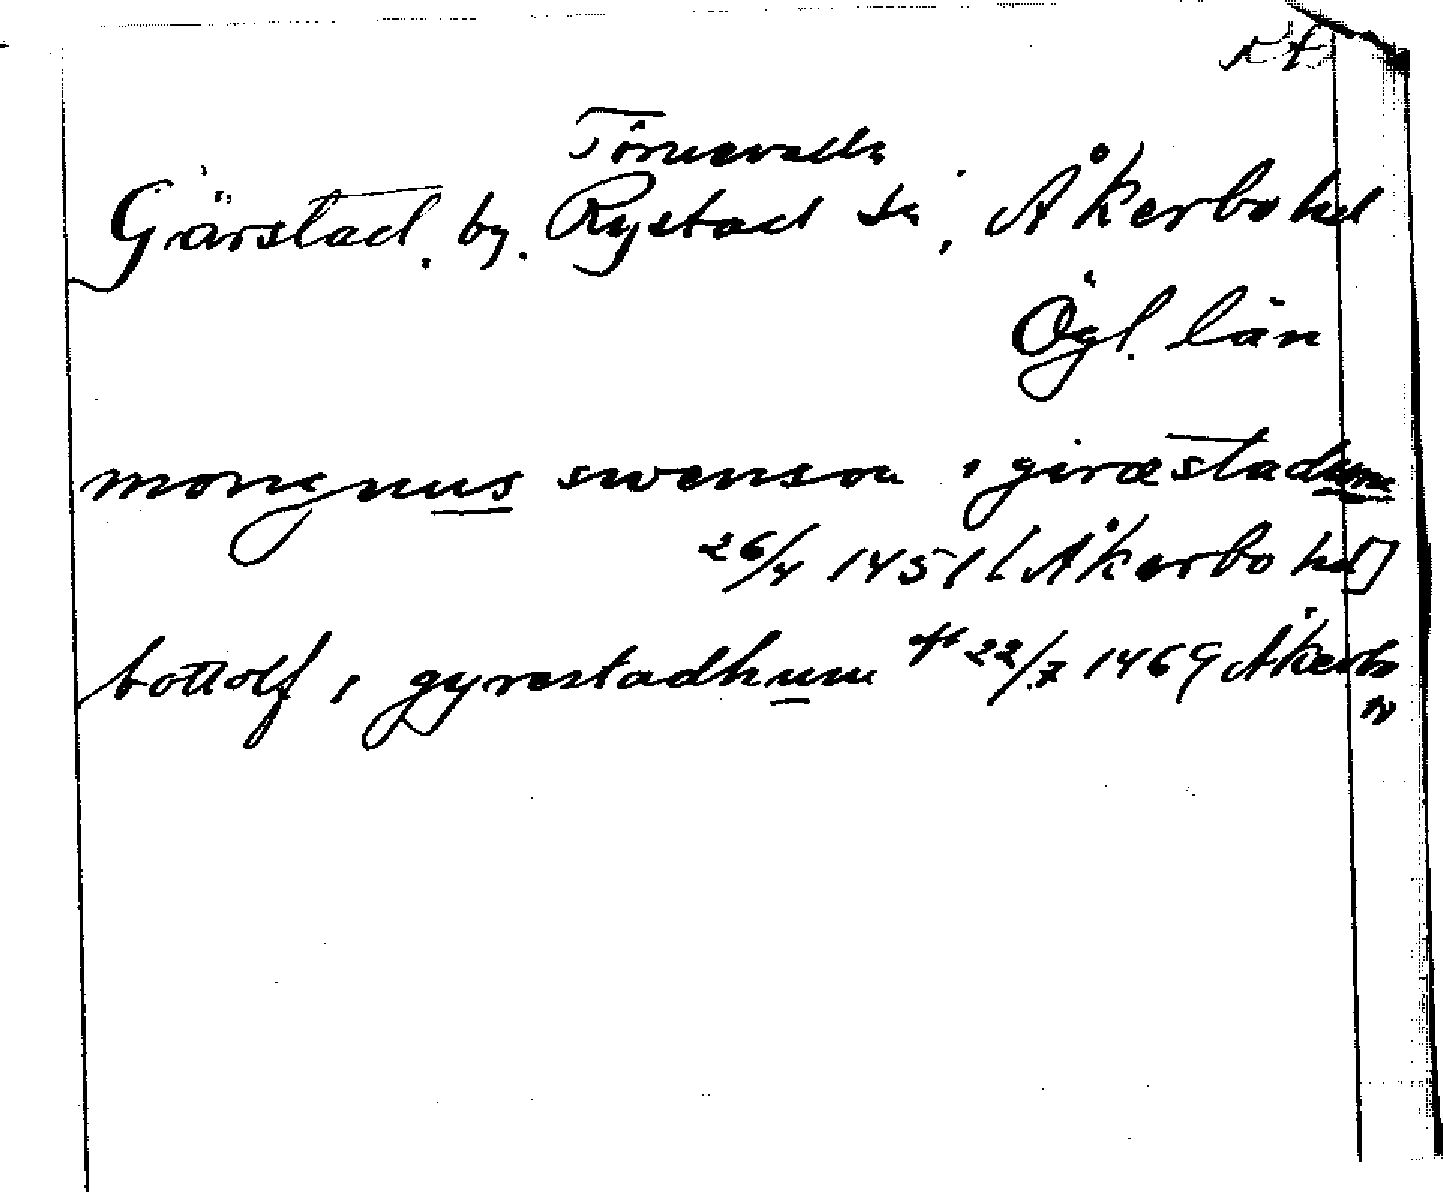 Törnevalla
Gärstad. by. Rystad sn, Åkerbo hd
Ögl. län
mongnus swenson i giræstadum
26/4 1451 [Åkerbo hd]
bottolf i gyrestadhum 22/7 1469 Åkerbo